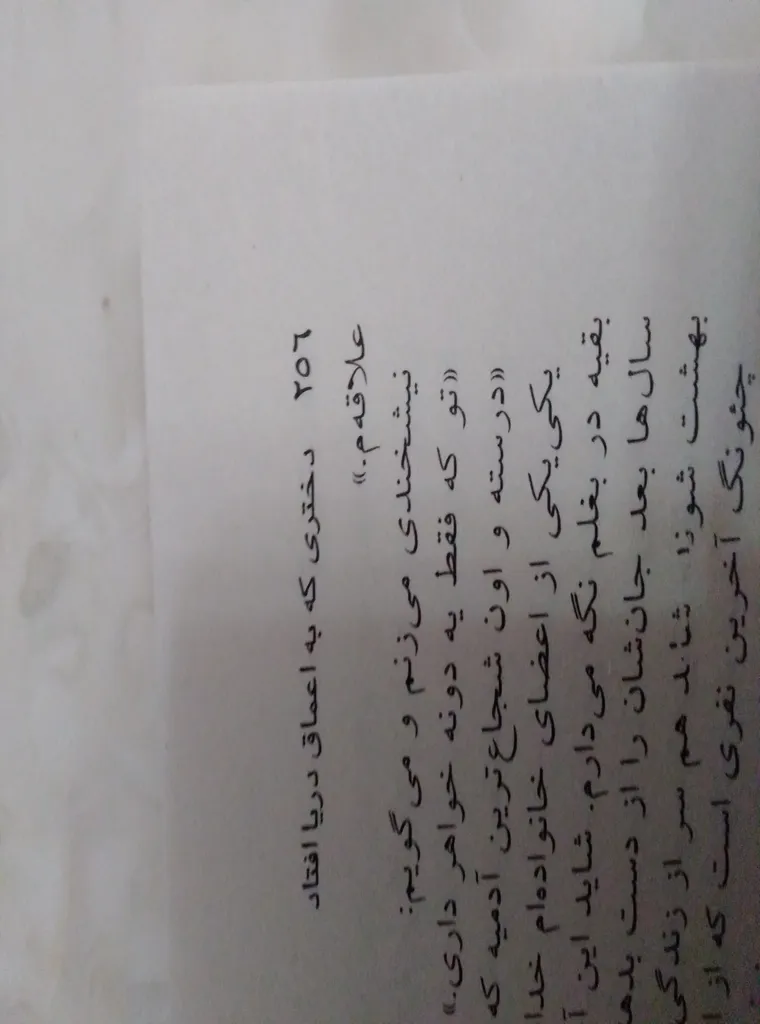 ۲۵۶ دختری که به اعماق دریا افتاد
علاقه‌م.»
نیشخندی می‌زنم و می‌گویم:
«تو که فقط یه دونه خواهر داری.»
«درسته و اون شجاع‌ترین آدمیه که
یکی‌یکی از اعضای خانواده‌ام خدا
بقیه در بغلم نگه می‌دارم. شاید این آ
سال‌ها بعد جان‌شان را از دست بده
بهشت شوند. شاید هم سر از زندگی
چئونگ آخرین نفری است که از ا